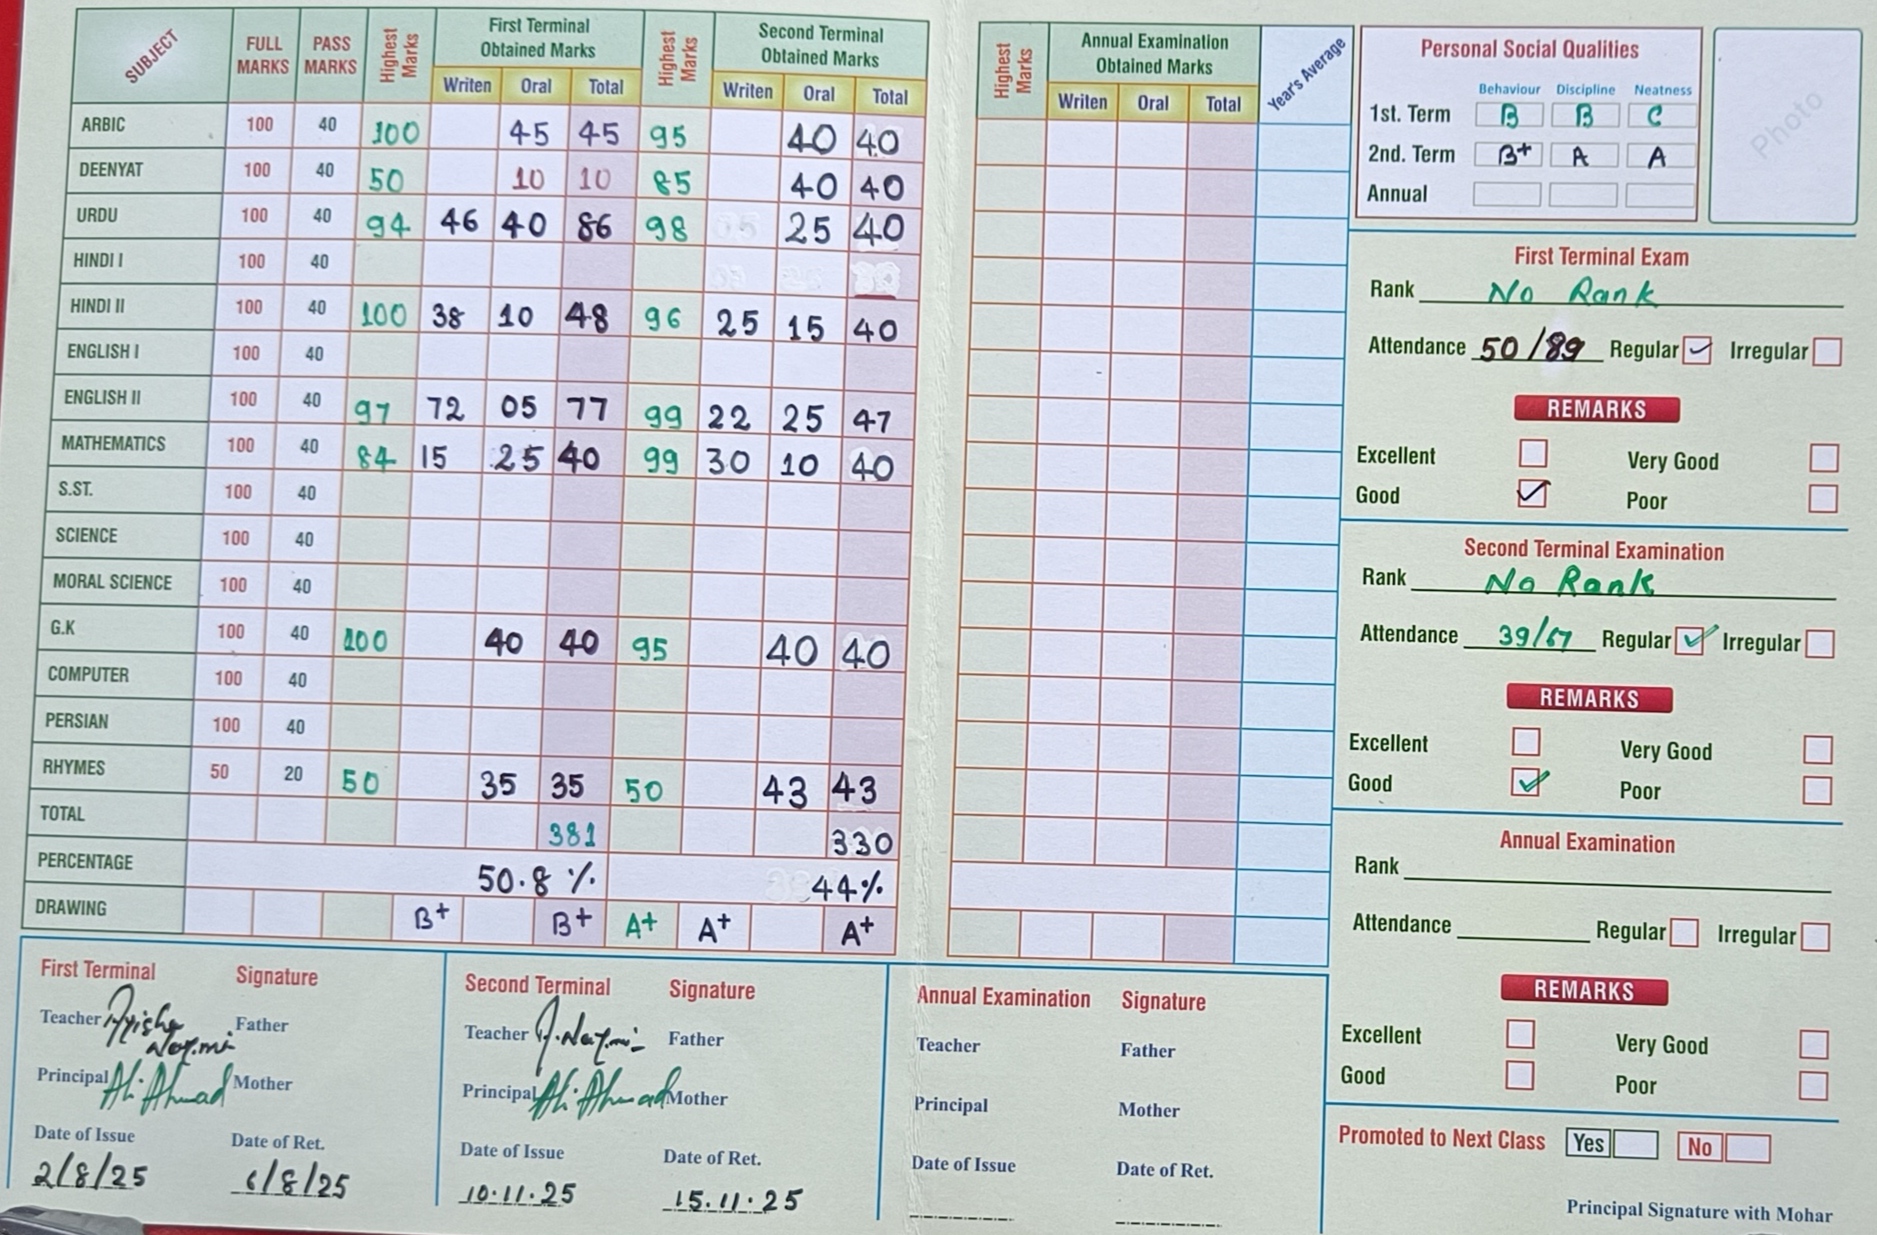 SUBJECT FULL MARKS PASS MARKS Highest Marks First Terminal Obtained Marks Highest Marks Second Terminal Obtained Marks Highest Marks Annual Examination Obtained Marks Year's Average
Writen Oral Total Writen Oral Total Writen Oral Total
ARBIC 100 40 100 45 45 95 40 40
DEENYAT 100 40 50 10 10 85 40 40
URDU 100 40 94 46 40 86 98 25 40
HINDI I 100 40
HINDI II 100 40 100 38 10 48 96 25 15 40
ENGLISH I 100 40
ENGLISH II 100 40 97 72 05 77 99 22 25 47
MATHEMATICS 100 40 84 15 25 40 99 30 10 40
S.ST. 100 40
SCIENCE 100 40
MORAL SCIENCE 100 40
G.K 100 40 100 40 40 95 40 40
COMPUTER 100 40
PERSIAN 100 40
RHYMES 50 20 50 35 35 50 43 43
TOTAL 381 330
PERCENTAGE 50.8 % 44%
DRAWING B+ B+ A+ A+ A+
Personal Social Qualities
Behaviour Discipline Neatness
1st. Term B B C
2nd. Term B+ A A
Annual
Photo
First Terminal Exam
Rank No Rank
Attendance 50/89 Regular Irregular
REMARKS
Excellent Very Good
Good Poor
Second Terminal Examination
Rank No Rank
Attendance 39/67 Regular Irregular
REMARKS
Excellent Very Good
Good Poor
Annual Examination
Rank
Attendance Regular Irregular
REMARKS
Excellent Very Good
Good Poor
Promoted to Next Class Yes No
Principal Signature with Mohar
First Terminal Signature
Teacher Ayisha Nazmi Father
Principal Ali Ahmad Mother
Date of Issue Date of Ret.
2/8/25 6/8/25
Second Terminal Signature
Teacher A. Nazmi Father
Principal Ali Ahmad Mother
Date of Issue Date of Ret.
10.11.25 15.11.25
Annual Examination Signature
Teacher Father
Principal Mother
Date of Issue Date of Ret.